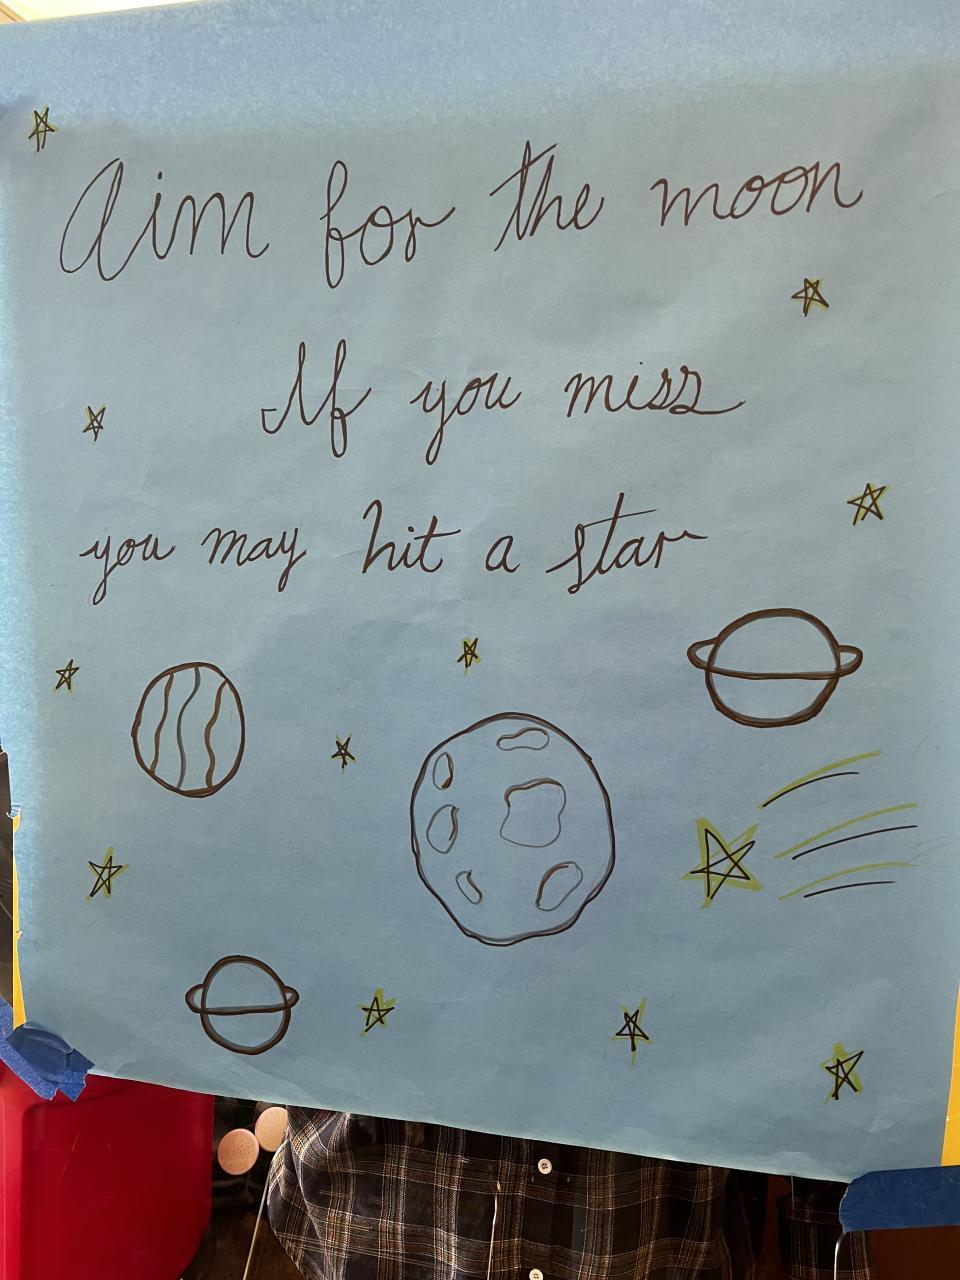 Aim for the moon
If you miss
you may hit a star